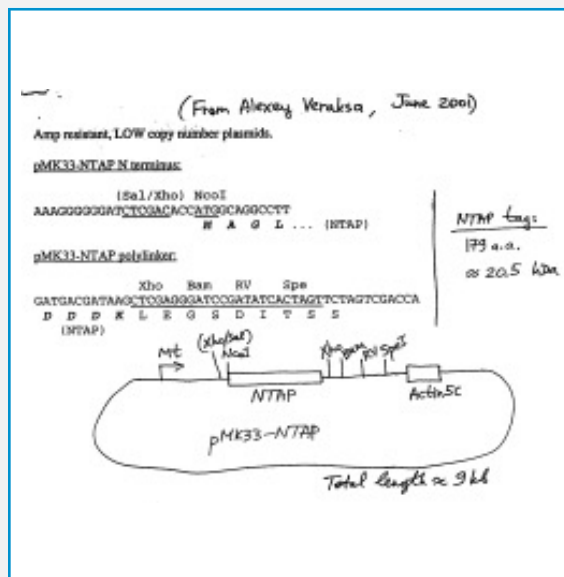 (From Alexey Veraksa, June 2001)
Amp resistant, LOW copy number plasmids.
pMK33-NTAP N terminus:
(Sal/Xho) NcoI
AAAGGGGGGATCTCGACACCATGGCAGGCCTT
M A G L ... (NTAP)
NTAP tag:
179 a.a.
≈ 20.5 kDa
pMK33-NTAP polylinker:
Xho Bam RV Spe
GATGACGATAAGCTCGAGGGATCCGATATCACTAGTTCTAGTCGACCA
D D D K L E G S D I T S S
(NTAP)
Mt
(Xho/Sal)
NcoI
Xho Bam RV SpeI
NTAP
Actin5c
pMK33-NTAP
Total length ≈ 9 kb